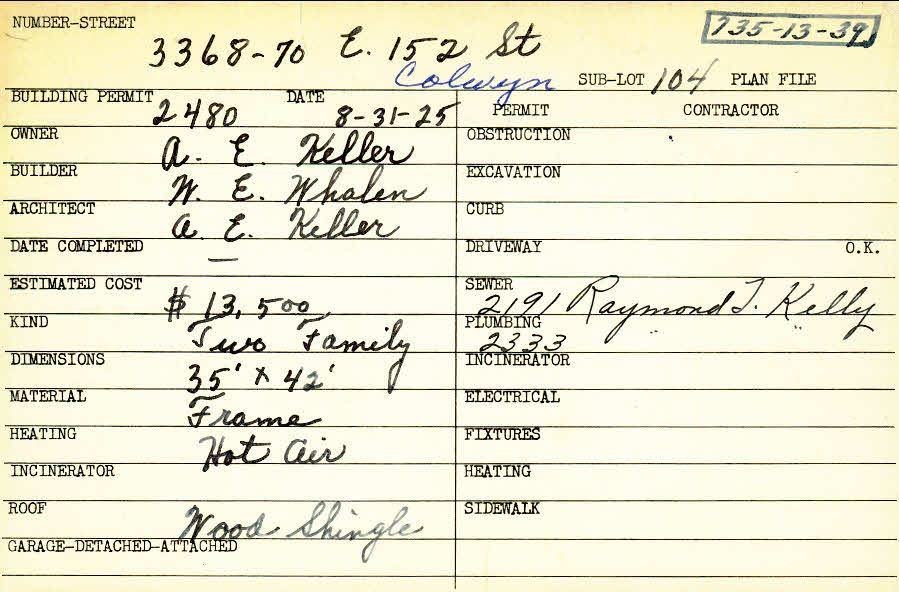 NUMBER-STREET 3368-70 E. 152 St 735-13-39
Colwyn SUB-LOT 104 PLAN FILE
BUILDING PERMIT 2480 DATE 8-31-25 PERMIT CONTRACTOR
OWNER A. E. Keller OBSTRUCTION
BUILDER W. E. Whalen EXCAVATION
ARCHITECT A. E. Keller CURB
DATE COMPLETED — DRIVEWAY O.K.
ESTIMATED COST $ 13,500 SEWER 2191 Raymond T. Kelly
KIND Two Family PLUMBING 2333 " "
DIMENSIONS 35' x 42' INCINERATOR
MATERIAL Frame ELECTRICAL
HEATING Hot Air FIXTURES
INCINERATOR HEATING
ROOF Wood Shingle SIDEWALK
GARAGE-DETACHED-ATTACHED